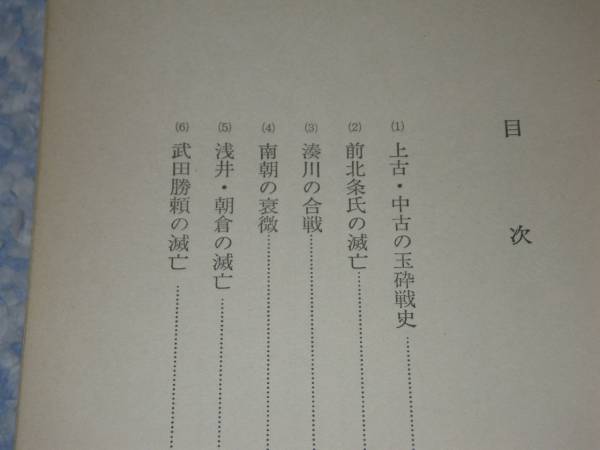 目次
(1) 上古・中古の玉砕戦史
(2) 前北条氏の滅亡
(3) 湊川の合戦
(4) 南朝の衰微
(5) 浅井・朝倉の滅亡
(6) 武田勝頼の滅亡